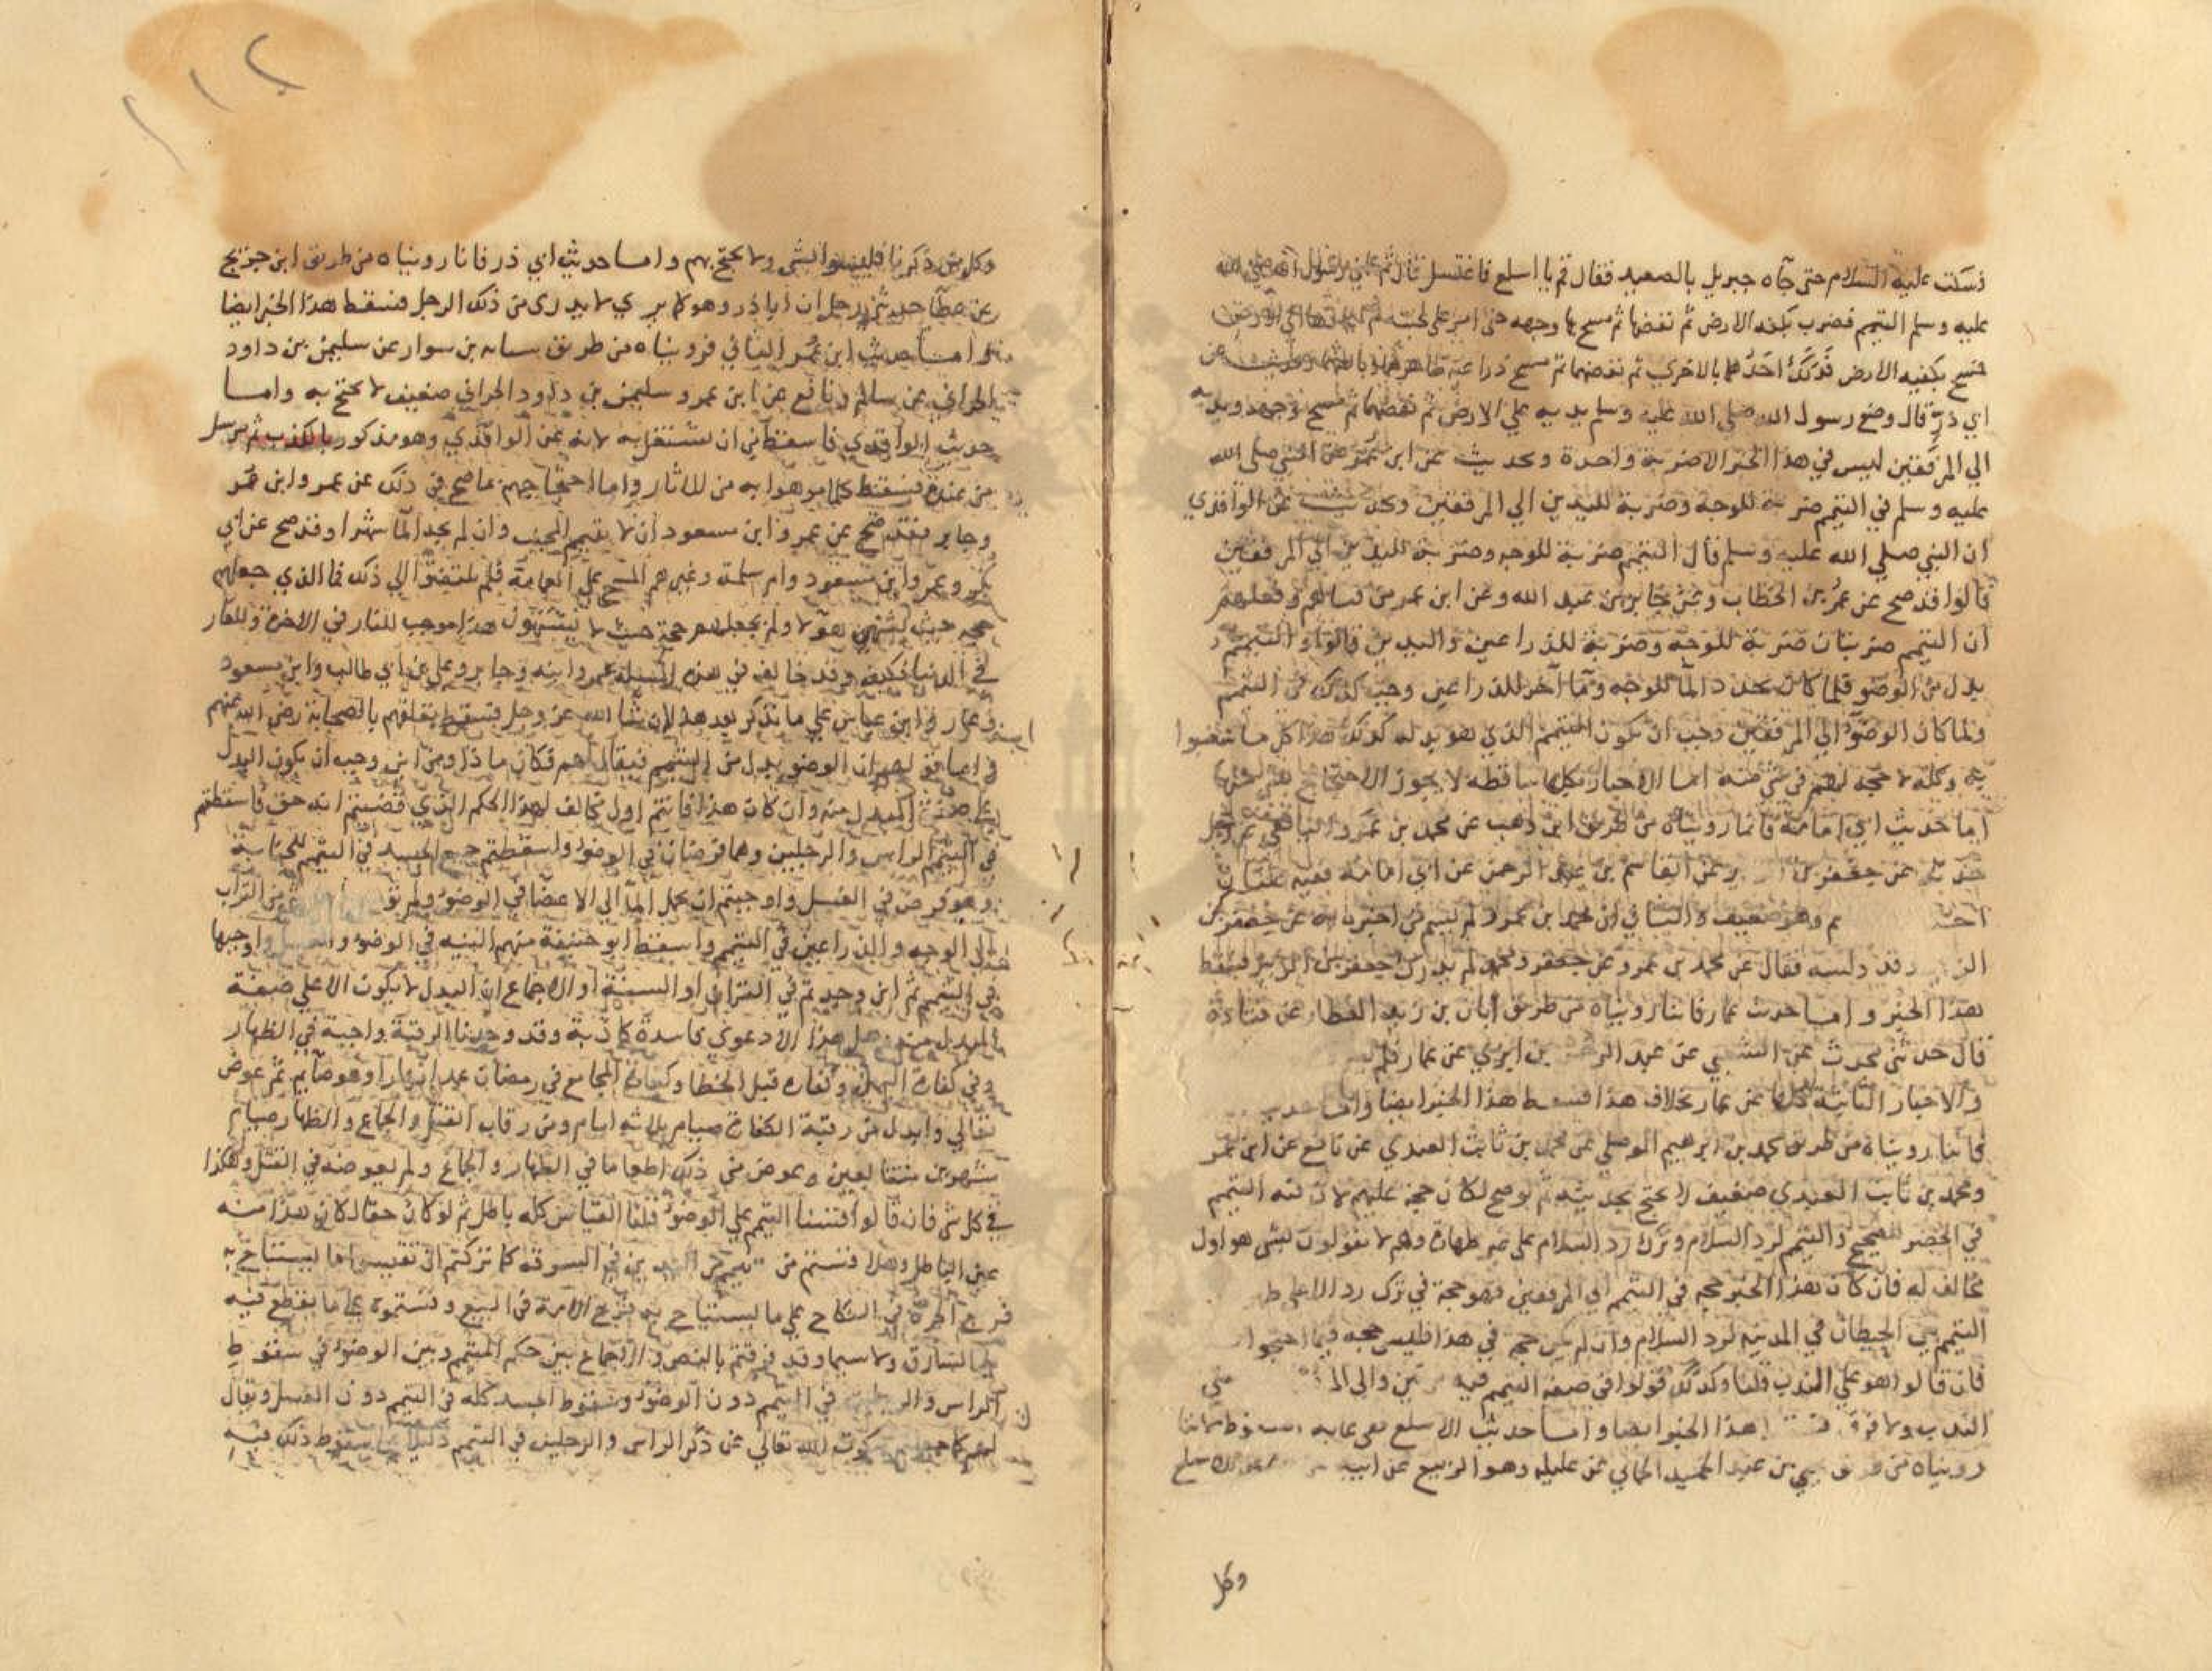 فسكت عليه السلام حتى جآه جبريل بالصعيد فقال قم يا اسلع فاغتسل قال ثم علمني رسول الله صلي الله
عليه وسلم التيمم فضرب بكفه الارض ثم نفضها ثم مسح بها وجهه حتى امر على لحيته ثم اعادها الي الارض
فمسح بكفيه الارض فدلك احدهما بالاخري ثم نفضهما ثم مسح ذراعيه ظاهرهما وباطنهما وحديث عن
ابي ذر قال وضع رسول الله صلي الله عليه وسلم يديه علي الارض ثم نفضهما ثم مسح وجهه ويديه
الي المرفقين ليس في هذا الخبر الا ضربة واحدة وحديث عن ابن عمر عن النبي صلي الله
عليه وسلم في التيمم ضربة للوجه وضربة لليدين الي المرفقين وحديث عن الواقدي
ان النبي صلي الله عليه وسلم قال التيمم ضربة للوجه وضربة لليدين الي المرفقين
قالوا قد صح عن عمر بن الخطاب وعن جابر بن عبد الله وعن ابن عمر من فتياهم وفعلهم
ان التيمم ضربتان ضربة للوجه وضربة للذراعين واليدين قالوا والتيمم
بدل من الوضو فلما كان يجدد الما للوجه وما آخر للذراعين وجب كذلك في التيمم
ولما كان الوضو الي المرفقين وجب ان يكون التيمم الذي هو بدله كذلك هذا كل ما شغبوا
به وكله لا حجة لهم في شي منه اما الاخبار فكلها ساقطه لا يجوز الاحتجاج بشي منها
اما حديث ابي امامة فانما رويناه من طريق ابن وهب عن محمد بن عمرو اليافعي عن رجل
حدثه عن جعفر بن وعن القاسم بن عبد الرحمن عن ابي امامة ففيه علتان
وهو ضعيف والثاني ان محمد بن عمرو لم يسم من اخبره به عن جعفر بن
وقد دلسه فقال عن محمد بن عمرو عن جعفر ومحمد لم يدرك جعفر بن الزبير فسقط
هذا الخبر واما حديث عمار فاننا رويناه من طريق ابان بن زيد العطار عن قتادة
قال حدثني محدث عن الشعبي عن عبد الرحمن بن ابزي عن عمار فلم
والاخبار الثابتة كلها عن عمار بخلاف هذا فسقط هذا الخبر ايضا واما
فاننا رويناه من طريق محمد بن ابرهيم الموصلي عن محمد بن ثابت العبدي عن نافع عن ابن عمر
ومحمد بن ثابت العبدي ضعيف لا يحتج بحديثه ثم لو صح لكان حجة عليهم لان فيه التيمم
في الحضر للصحيح والتيمم لرد السلام وترك رد السلام على غير طهارة وهم لا يقولون بشي هو اول
مخالف له فان كان هذا الخبر حجة في التيمم الي المرفقين فهو حجة في ترك رد الا على
التيمم بين الحيطان في المدينه لرد السلام وان لم يكن حجة في هذا فليس حجة فيما احتجوا
فان قالوا هو علي الندب قلنا وكذلك قولوا في صفة التيمم فيه والي
الندب ولا فرق هذا الخبر ايضا واما حديث الاسلع
رويناه من طريق يحيي بن عبد الحميد الحماني عن عليله وهو الربيع عن ابيه
وكل
١١٢
وكل من ذكرنا فليسوا بشي ولا يحتج بهم واما حديث ابي ذر فانا رويناه من طريق ابن جريج
عن عطا حدثني رجل ان ابا ذر وهو كما يري لا يدري من ذلك الرجل فسقط هذا الخبر ايضا
واما حديث ابن عمر الثاني فرويناه من طريق شبابه بن سوار عن سليمن بن داود
الحراني عن سالم ونافع عن ابن عمر وسليمن بن داود الحراني ضعيف لا يحتج به واما
حديث الواقدي فاسقط من ان نشتغل به لانه عن الواقدي وهو مذكور بالكذب ثم مرسل
من عنده فسقط كلما موهوا به من الاثار واما احتجاجهم بما صح في ذلك عن عمر وابن عمر
وجابر فقد صح عن عمر وابن مسعود ان لا يتيمم الجنب وان لم يجد الما شهرا وقد صح عن ابي
بكر وعمر وابن مسعود وام سلمة وغيرهم المسح علي العمامة فلم يلتفتوا الي ذلك فما الذي جعلهم
حجه حيث يشتهي هولا ولم يجعلهم حجة حيث لا يشتهون هذا موجب للنار في الاخرة وللعار
في الدنيا فكيف وقد خالف في هذه المسيلة عمر وابنه وجابر وعلي بن ابي طالب وابن مسعود
وعمار وابن عباس علي ما نذكر بعد هذا ان شا الله عز وجل فسقط تعلقهم بالصحابة رضي الله عنهم
بدل من التيمم فيقال لهم فكان ماذا ومن اين وجب ان يكون البدل
علي صفة المبدل منه وان كان هذا فانتم اول مخالف لهذا الحكم الذي قضيتم انه حق فاسقطتم
في التيمم الراس والرجلين وهما فرضان في الوضو واسقطتم جميع الجسد في التيمم للجنابة
وهو فرض في الغسل واوجبتم ان يحمل الما الي الاعضا في الوضو ولم من التراب
الي الوجه والذراعين في التيمم واسقط ابو حنيفة منهم النيه في الوضو والغسل واوجبها
في التيمم ثم اين وجدتم في القران او السنة او الاجماع ان البدل لا يكون الا علي صفة
المبدل منه هل هذا الا دعوي فاسدة كاذبة وقد وجدنا الرقبة واجبة في الظهار
وفي كفارة اليمين وكفارة قتل الخطا وكفارة المجامع في رمضان عمدا نهارا وهو صايم ثم عوض
تعالي وابدل من رقبة الكفارة صيام ثلاثه ايام ومن رقاب القتل والجماع والظهار صيام
شهرين متتابعين وعوض من ذلك اطعاما في الظهار والجماع ولم يعوضه في القتل وهكذا
في كل شي فان قالوا قسنا التيمم علي الوضو قلنا القياس كله باطل ثم لو كان حقا لكان هذا منه
عين الباطل وهلا قستم من في السرقه كما تركتم ان تقيسوا ما يستباح به
فرج الحرة في النكاح علي ما يستباح به فرج الامة في البيع وقستموه علي ما يقطع فيه
يد السارق ولا سيما وقد فرقتم بالنص والاجماع بين حكم التيمم وبين الوضو في سقوط
الراس والرجلين في التيمم دون الوضو وسقوط الجسد كله في التيمم دون الغسل ويقال
لهم كما جعلتم سكوت الله تعالي عن ذكر الراس والرجلين في التيمم دليلا على سقوط ذلك فيه